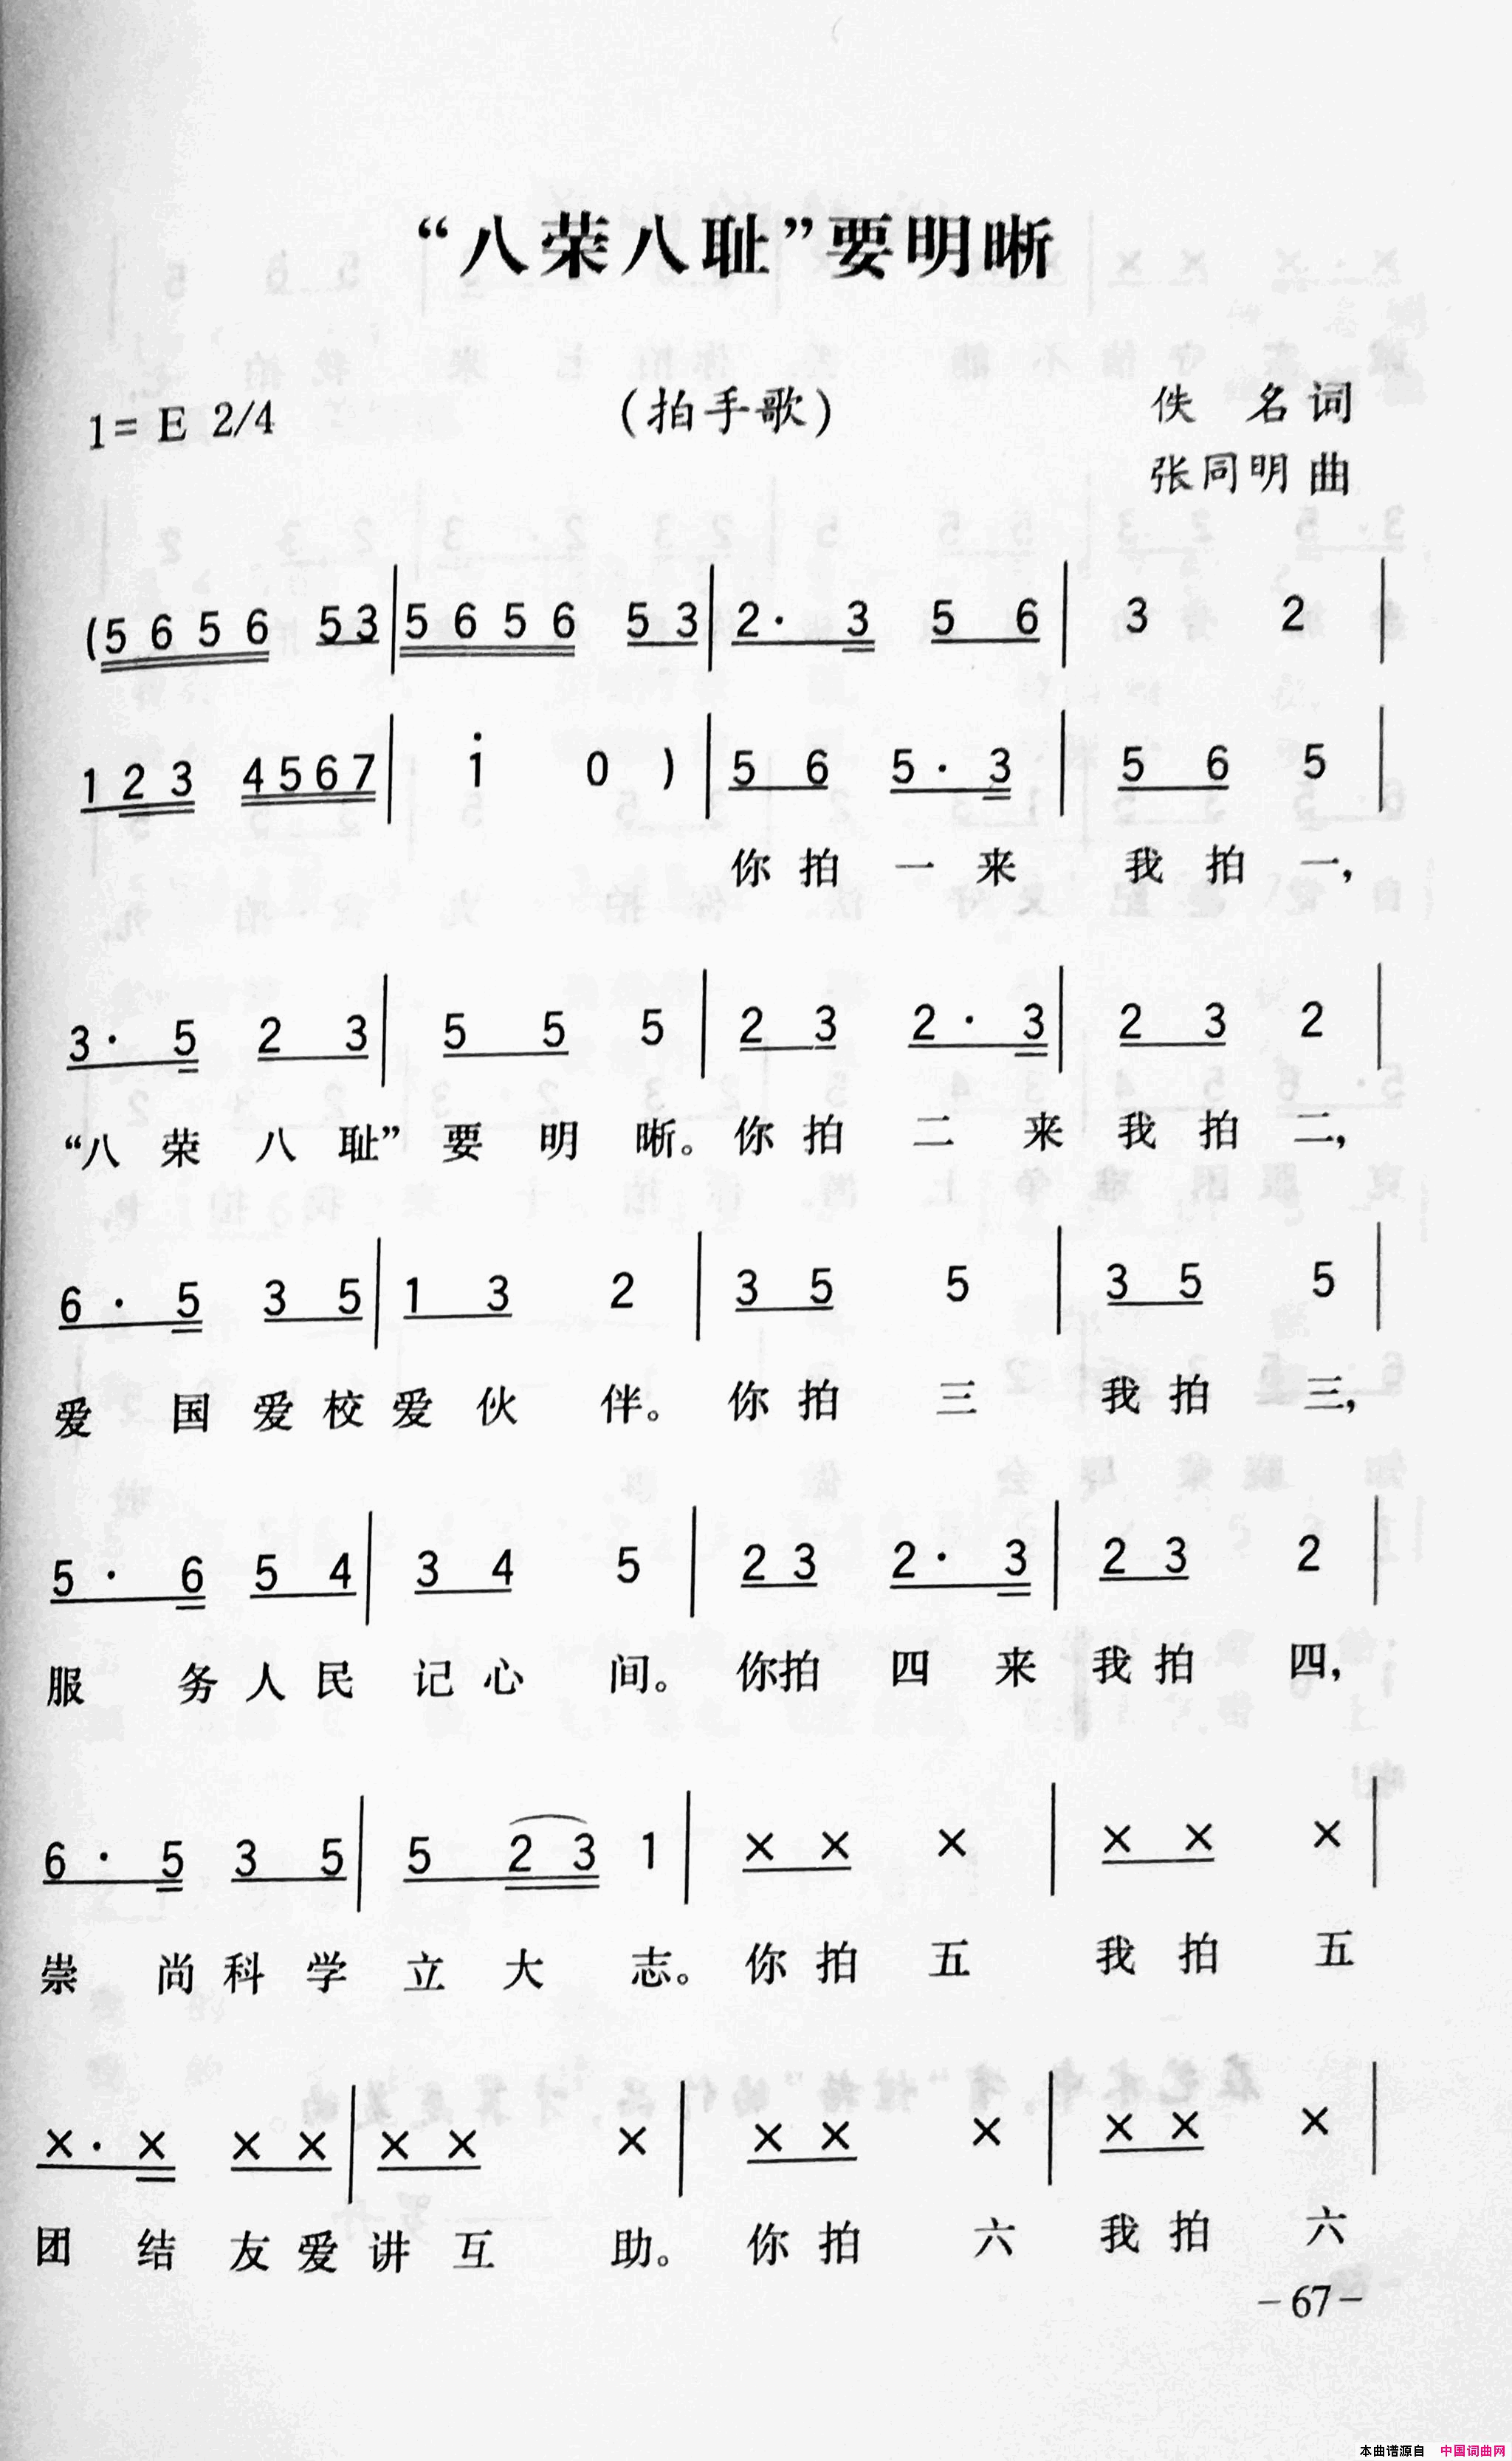 “八荣八耻”要明晰
1= E 2/4 (拍手歌) 佚 名 词
张同明 曲
(5 6 5 6 5 3 | 5 6 5 6 5 3 | 2 · 3 5 6 | 3 2 |
1 2 3 4 5 6 7 | i 0 ) | 5 6 5 · 3 | 5 6 5 |
你 拍 一 来 我 拍 一,
3 · 5 2 3 | 5 5 5 | 2 3 2 · 3 | 2 3 2 |
“八 荣 八 耻” 要 明 晰。 你 拍 二 来 我 拍 二,
6 · 5 3 5 | 1 3 2 | 3 5 5 | 3 5 5 |
爱 国 爱 校 爱 伙 伴。 你 拍 三 我 拍 三,
5 · 6 5 4 | 3 4 5 | 2 3 2 · 3 | 2 3 2 |
服 务 人 民 记 心 间。 你 拍 四 来 我 拍 四,
6 · 5 3 5 | 5 2 3 1 | × × × | × × × |
崇 尚 科 学 立 大 志。 你 拍 五 我 拍 五
× · × × × | × × × | × × × | × × × |
团 结 友 爱 讲 互 助。 你 拍 六 我 拍 六
－67－
本曲谱源自 中国词曲网